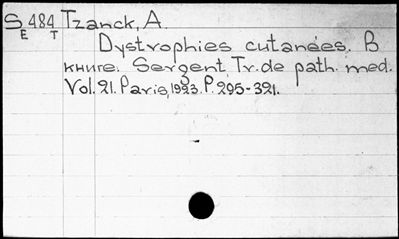 S 484 Tzanck, A.
E T
Dystrophies cutanées. В
книге. Sergent, Tr. de path. med.
Vol. 21. Paris, 1923. P. 295-321.